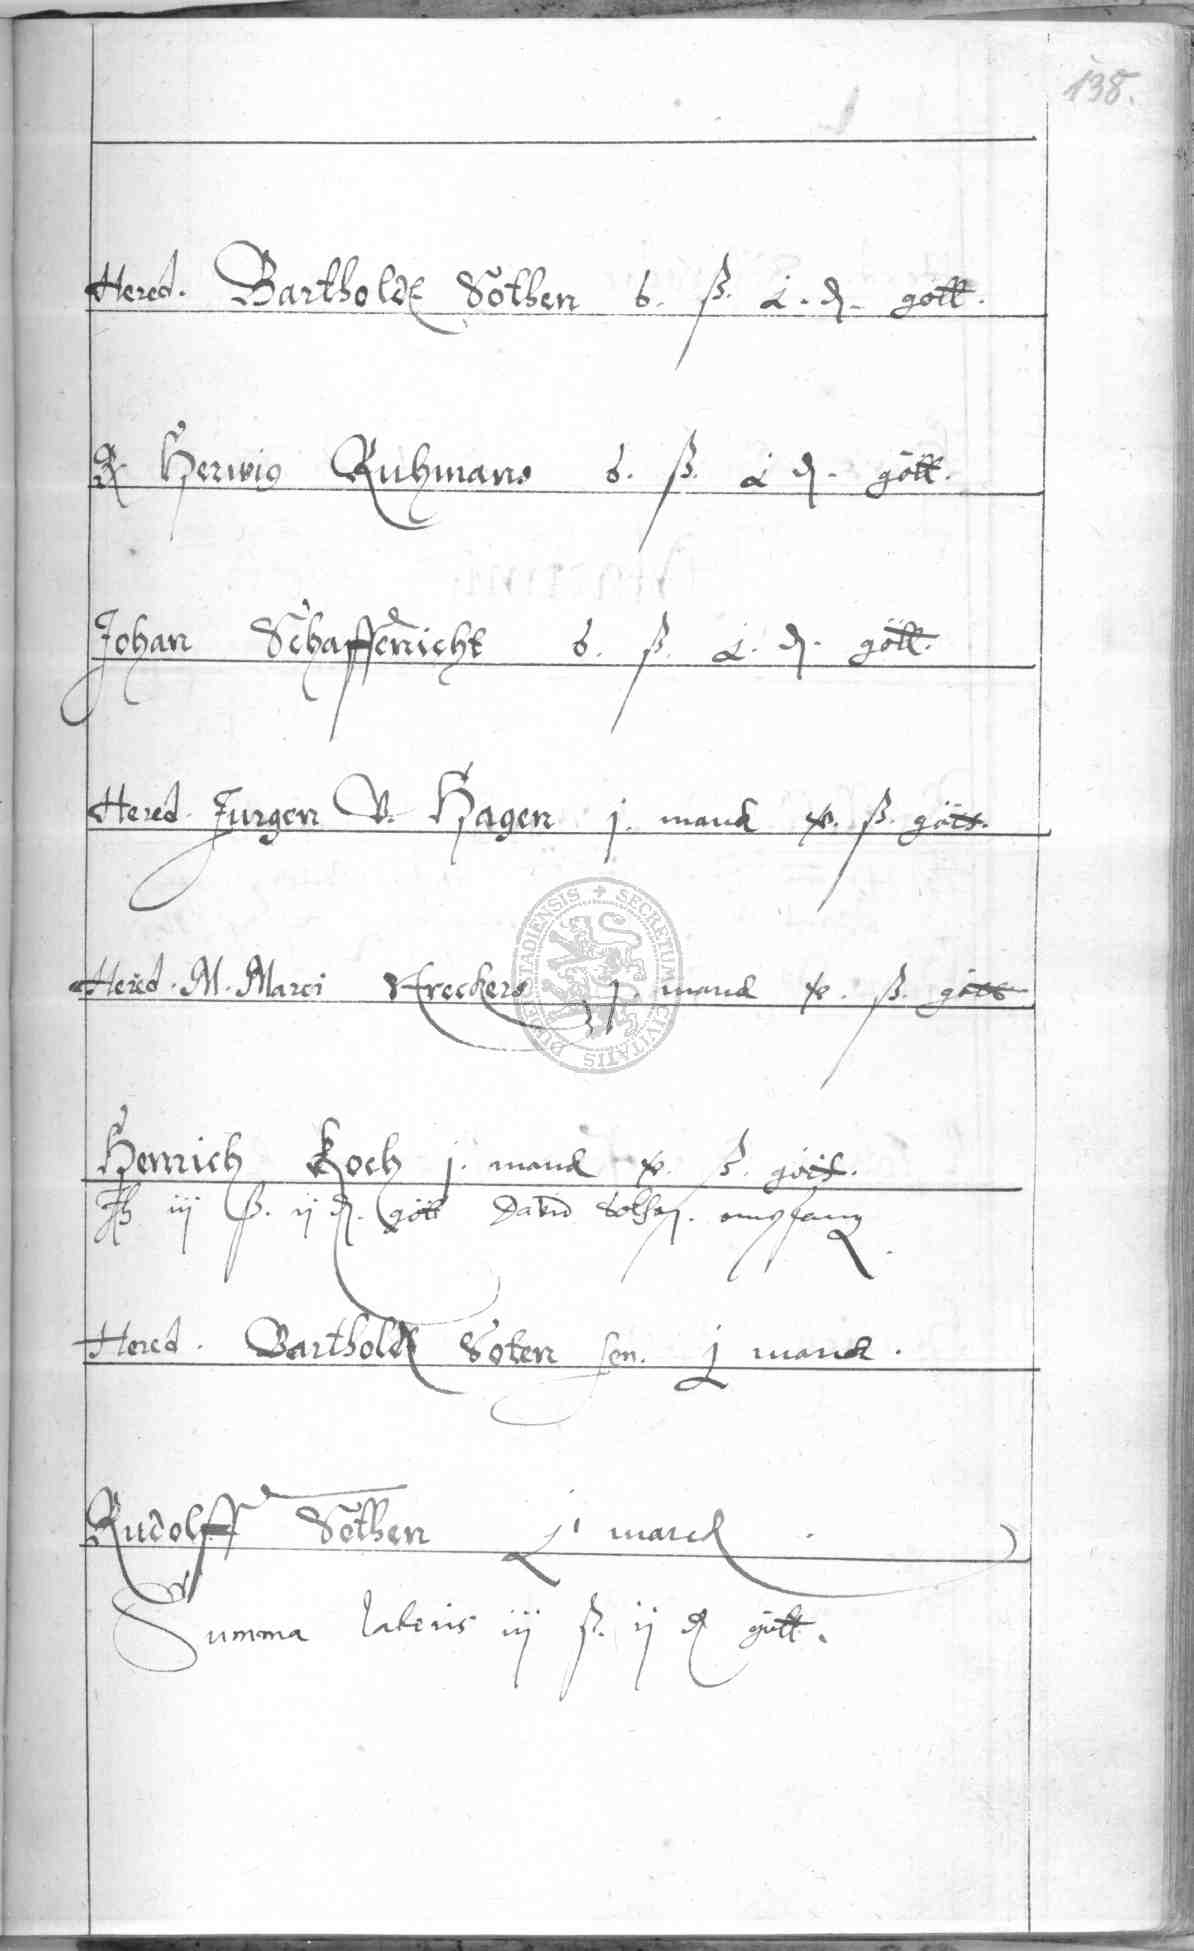 138.
Hered. Bartholdt Söthen 6. ß. d. gött.
Herwig Ruhmans 6. ß. d. gött.
Johan Schaffenicht 6. ß. d. gött.
Hered. Jurgen V. Hagen j. marck ß. gött.
Hered. M. Marci j. marck ß. gött
SECRETUM CIVITATIS DUDERSTADIENSIS
Henrich Koch j. marck ß. gött.
iij ß. ij d. gött David Sothen. empfang
Hered. Bartholdt Soten sen. j marck.
Rudolff Söthen marck
Summa lateris iij ß. ij d gött.